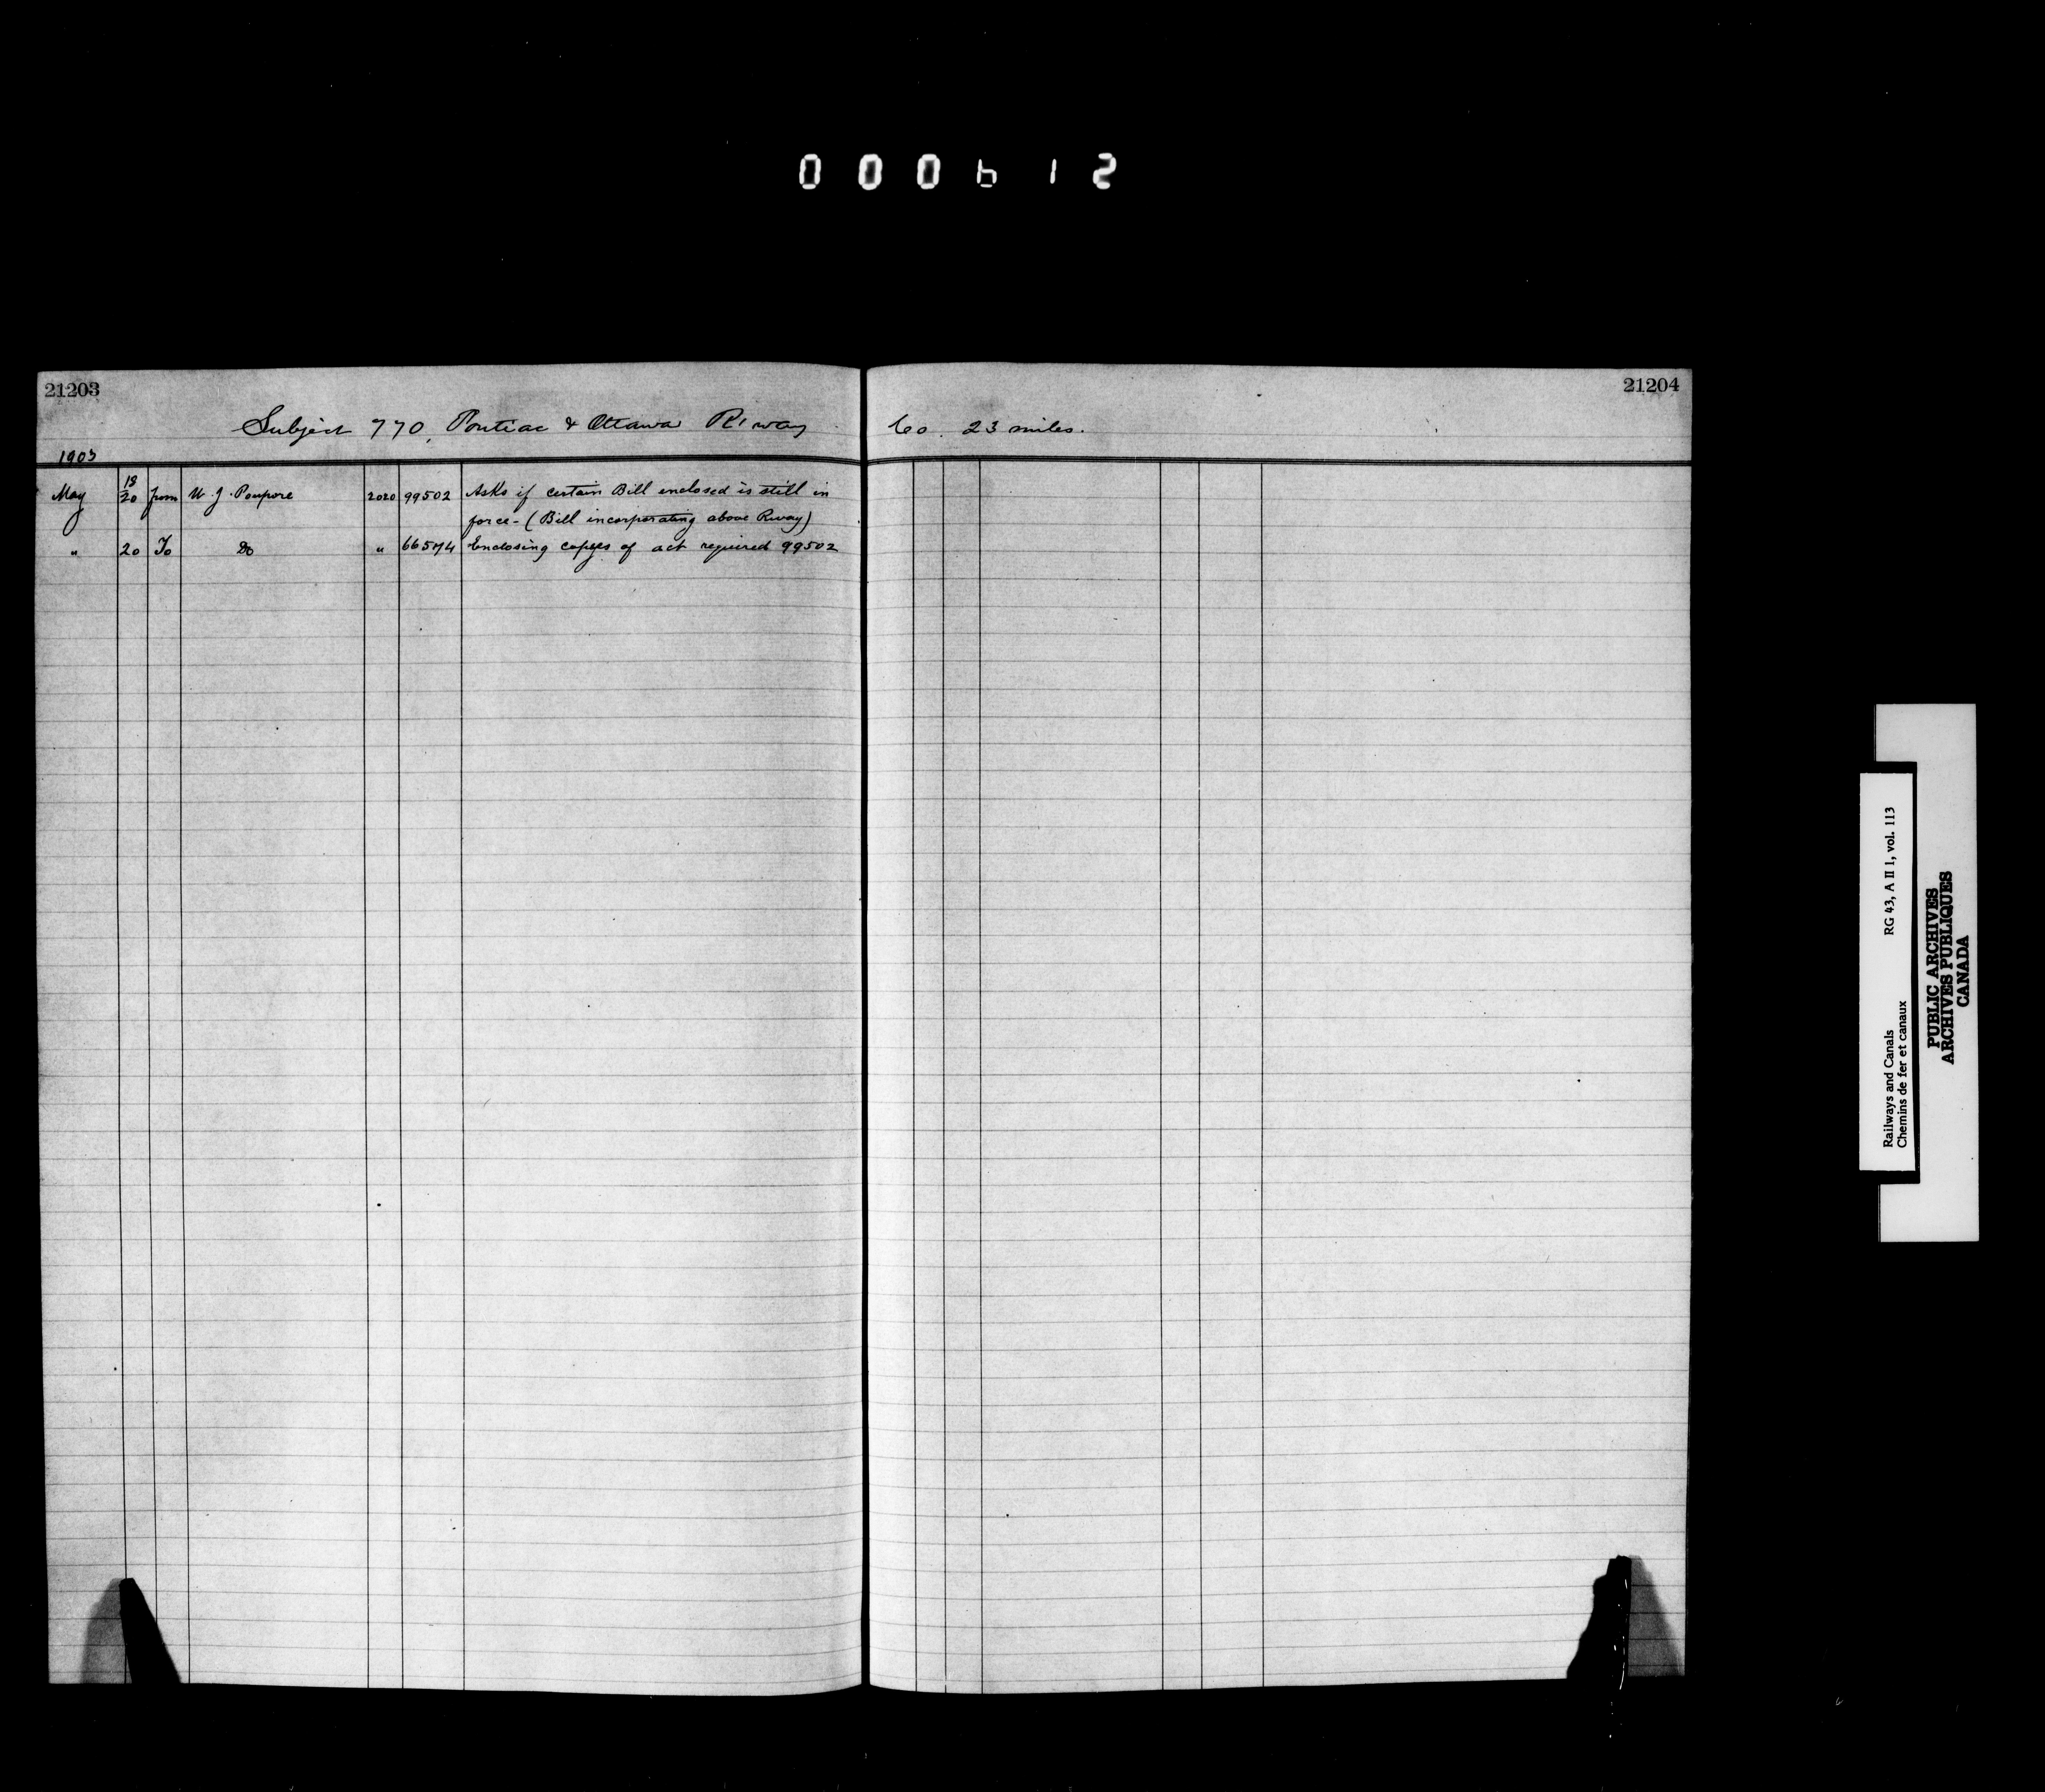 000612
21203
21204
Subject 770, Pontiac & Ottawa R'way Co. 23 miles.
1903
May 18/20 from W. J. Poupore 2020 99502 Asks if certain Bill enclosed is still in
force - (Bill incorporating above Rway)
" 20 To Do " 66574 Enclosing copies of act required 99502
Railways and Canals RG 43, A II 1, vol. 113
Chemins de fer et canaux
PUBLIC ARCHIVES
ARCHIVES PUBLIQUES
CANADA